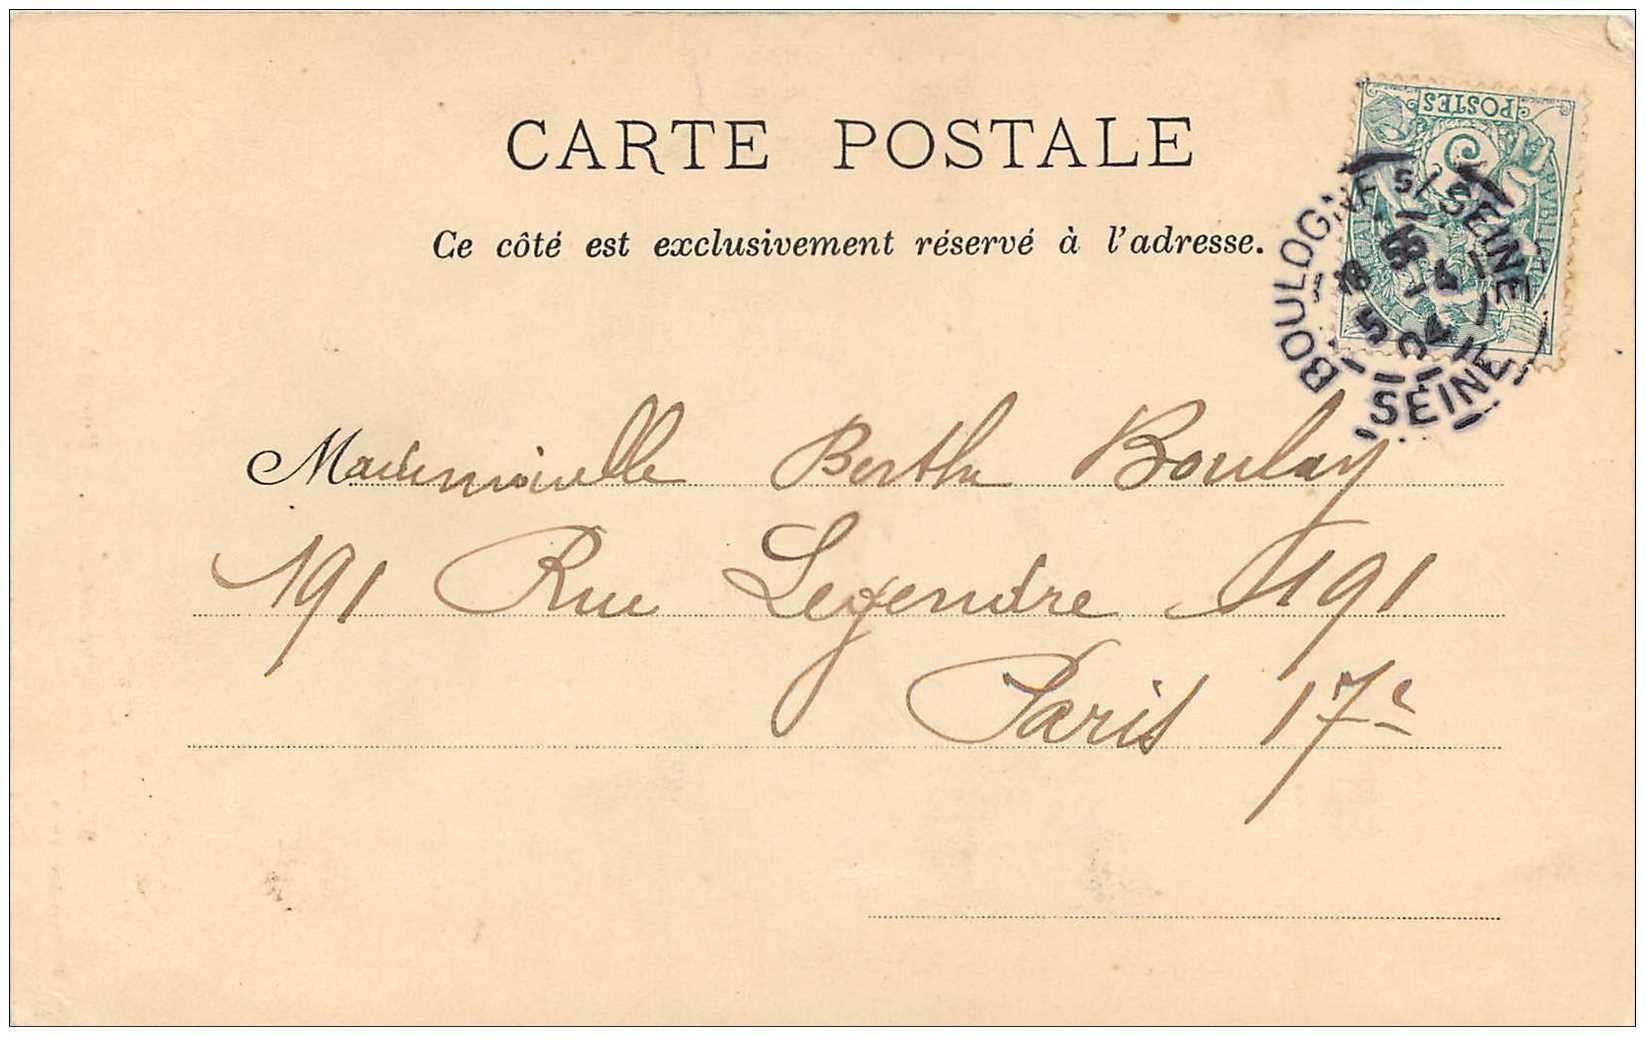 CARTE POSTALE
Ce côté est exclusivement réservé à l'adresse.
POSTES
5
BOULOGNE S/ SEINE
SEINE
Mademoiselle Berthe Boulay
191 Rue Legendre 191
Paris 17e